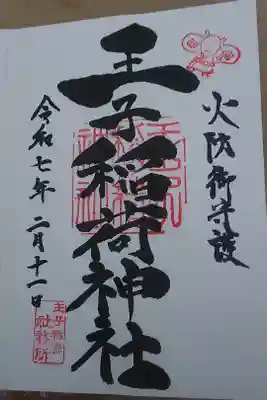 火防御守護
王子稲荷神社
令和七年 二月十一日
王子稲荷
社務所